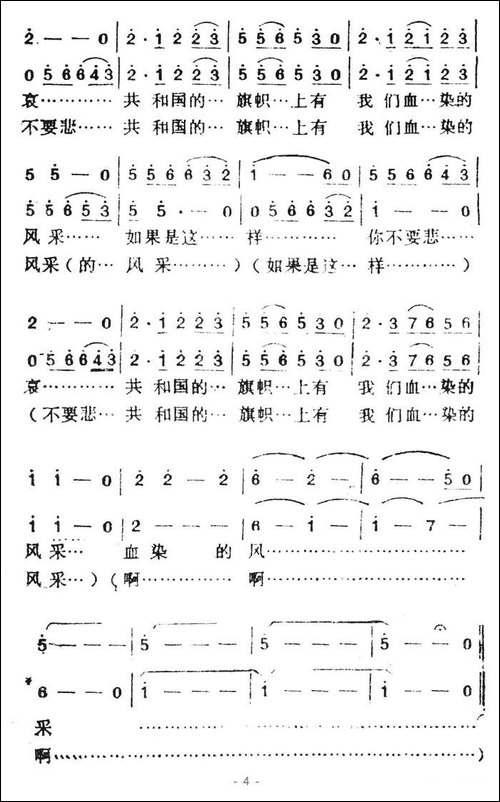 2 — — 0 | 2 · 1 2 2 3 | 5 5 6 5 3 0 | 2 · 1 2 1 2 3 |
0 5 6 6 4 3 | 2 · 1 2 2 3 | 5 5 6 5 3 0 | 2 · 1 2 1 2 3 |
哀………… 共 和国的… 旗帜…上有 我们血…染的
不要悲…… 共 和国的… 旗帜…上有 我们血…染的
5 5 — 0 | 5 5 6 6 3 2 | 1 — — 6 0 | 5 5 6 6 4 3 |
5 5 6 5 3 | 5 5 · — 0 | 0 5 6 6 3 2 | 1 — — 0 |
风采…… 如果是这…… 样………… 你不要悲……
风采(的… 风 采………)(如果是这…样……)
2 — — 0 | 2 · 1 2 2 3 | 5 5 6 5 3 0 | 2 · 3 7 6 5 6 |
0 5 6 6 4 3 | 2 · 1 2 2 3 | 5 5 6 5 3 0 | 2 · 3 7 6 5 6 |
哀………… 共 和国的… 旗帜…上有 我们血…染的
(不要悲… 共 和国的… 旗帜…上有 我们血…染的
1 1 — 0 | 2 — 2 — | 6 — 2 — | 6 — — 5 0 |
1 1 — 0 | 2 — — — | 6 — 1 — | 1 — 7 — |
风采… 血染 的风……………………
风采…)(啊………… 啊……………………
5 — — — | 5 — — — | 5 — — — | 5 — — 0 ‖
6 — — 0 | 1 — — — | 1 — — — | 1 — — 0 ‖
采 ……………………………………
啊……………………………………………)
- 4 -